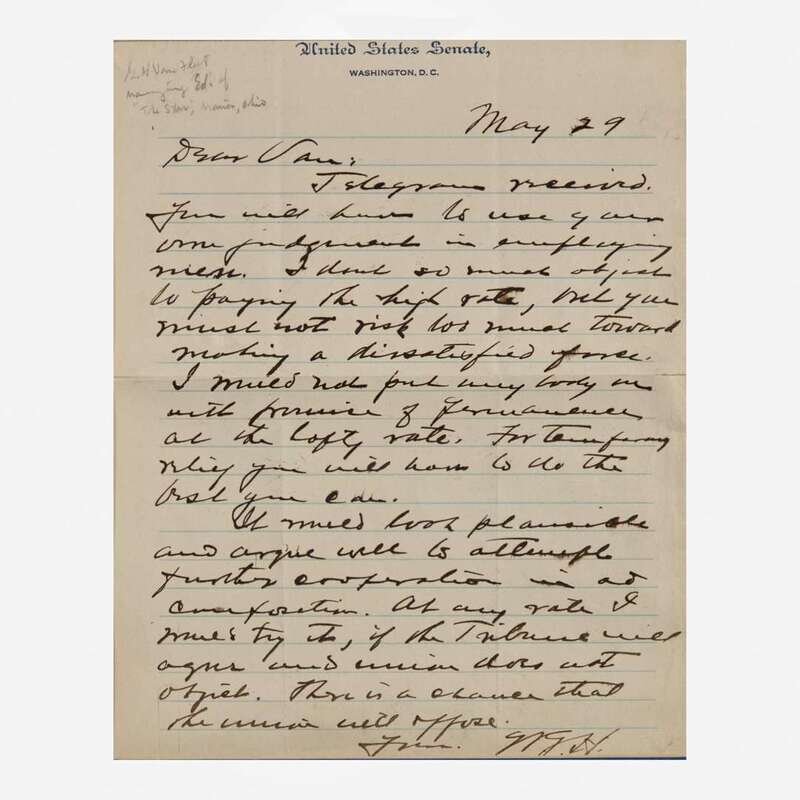 United States Senate,
WASHINGTON, D. C.
Van Fleet
managing Ed. of
"The Star", Marion, Ohio
May 29
Dear Van:
Telegram received.
You will have to use your
own judgment in employing
men. I dont so much object
to paying the high rate, but you
must not risk too much toward
making a dissatisfied force.
I would not put any body on
with promise of permanence
at the lofty rate. For temporary
relief you will have to do the
best you can.
It would look plausible
and argue well to attempt
further cooperation in ad
composition. At any rate I
would try it, if the Tribune will
agree and union does not
object. There is a chance that
the union will oppose.
Yours. W.G.H.